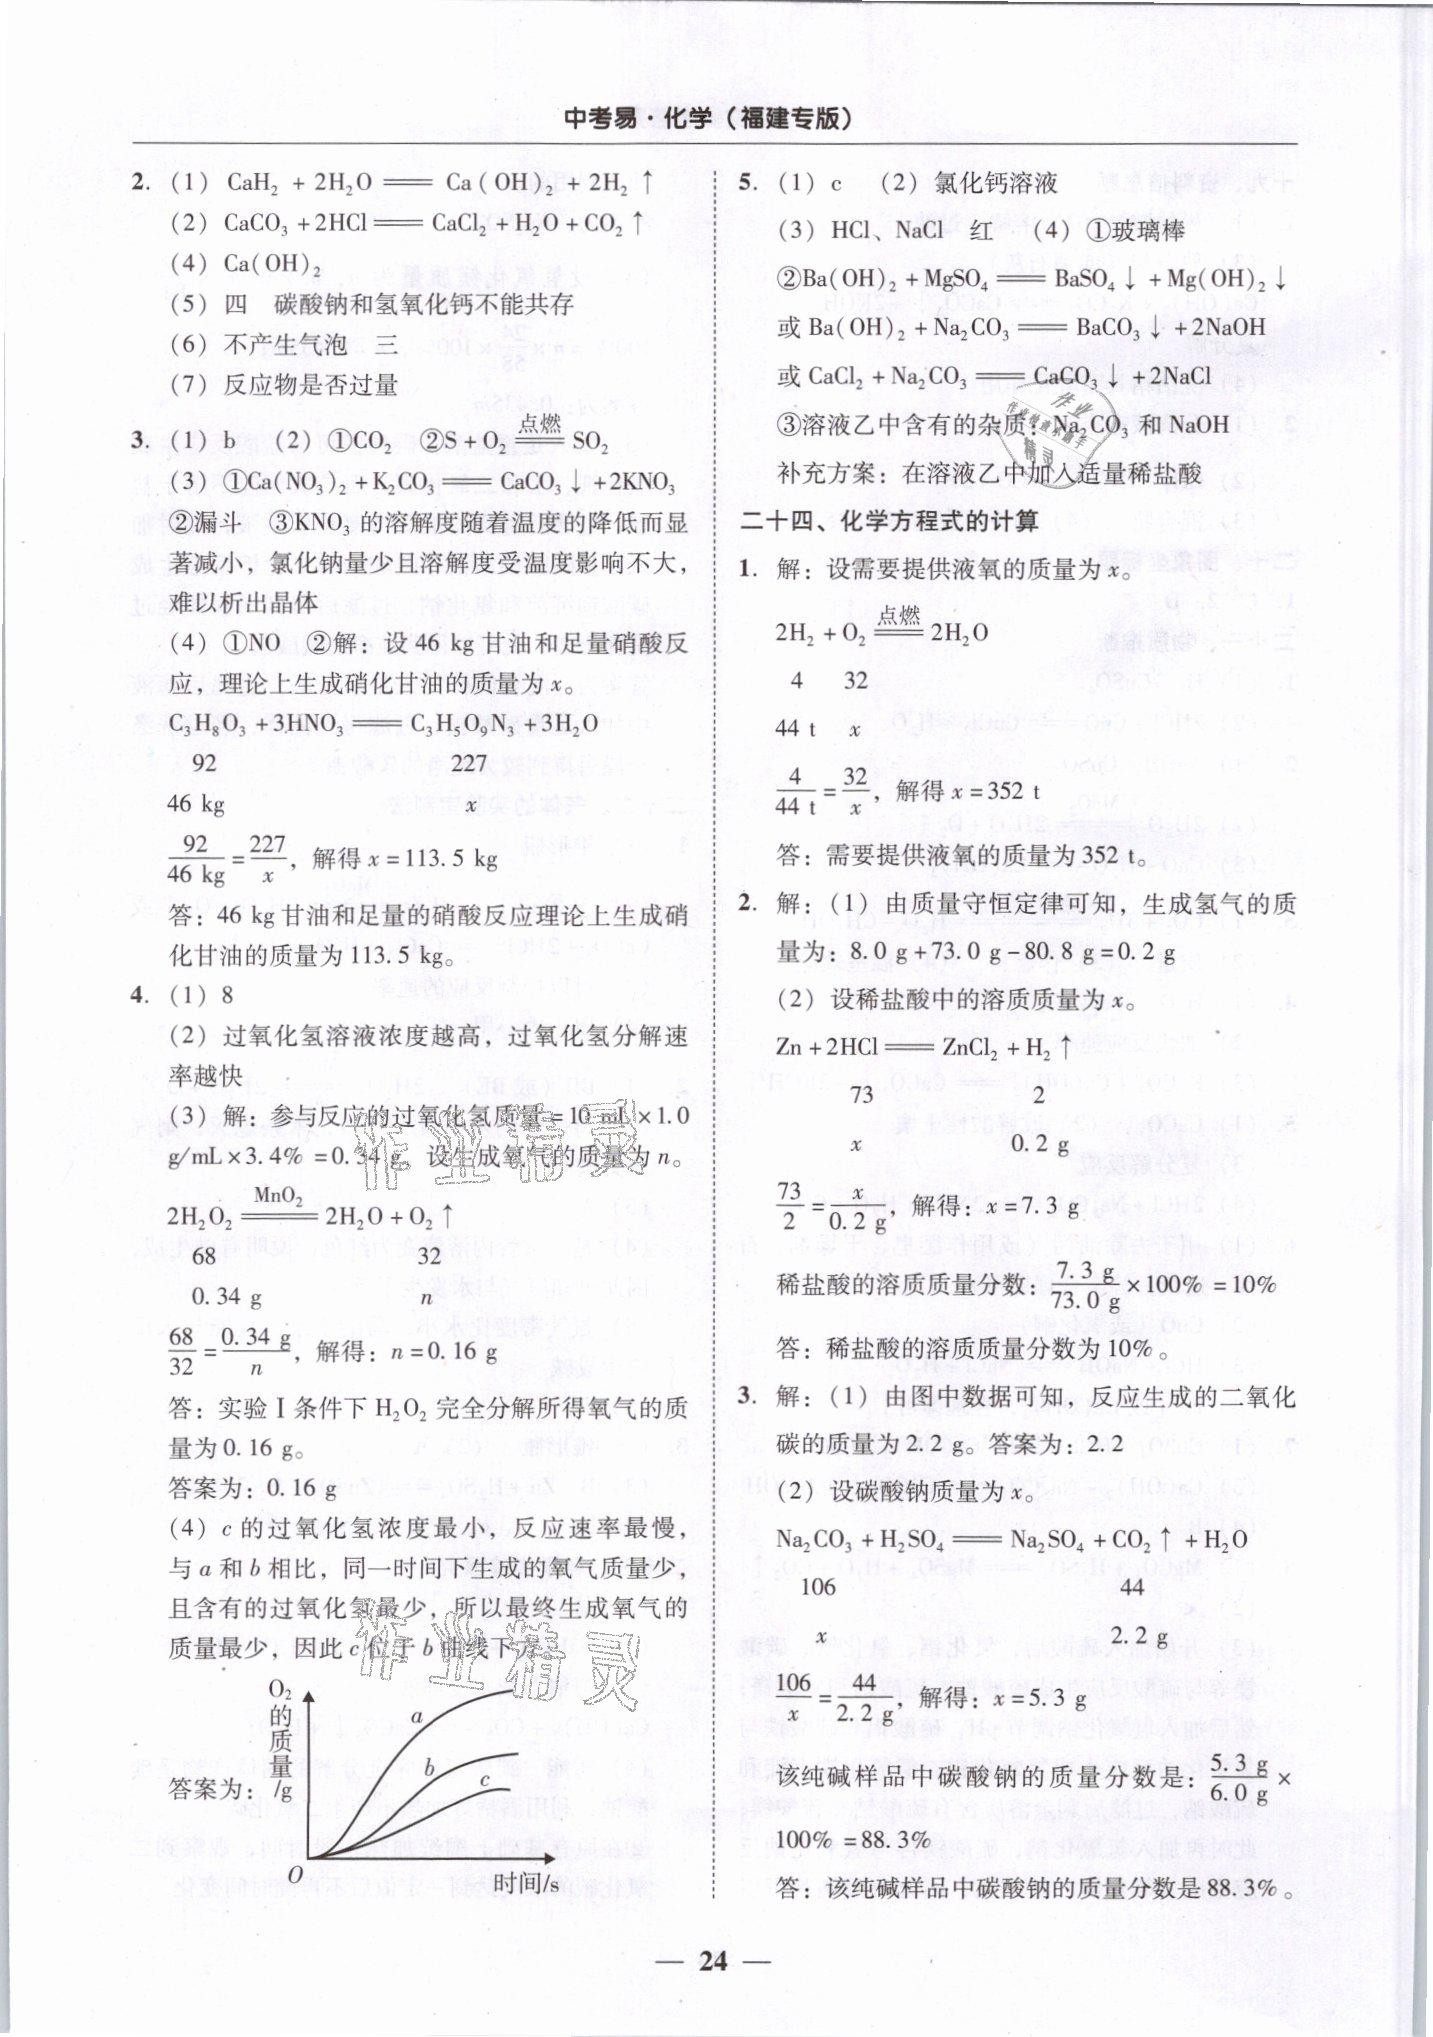 中考易·化学（福建专版）
2. （1） CaH₂ + 2H₂O ══ Ca(OH)₂ + 2H₂↑
（2） CaCO₃ + 2HCl ══ CaCl₂ + H₂O + CO₂↑
（4） Ca(OH)₂
（5） 四 碳酸钠和氢氧化钙不能共存
（6） 不产生气泡 三
（7） 反应物是否过量
3. （1） b （2） ①CO₂ ②S + O₂ 点燃══ SO₂
（3） ①Ca(NO₃)₂ + K₂CO₃ ══ CaCO₃↓ + 2KNO₃
②漏斗 ③KNO₃ 的溶解度随着温度的降低而显
著减小，氯化钠量少且溶解度受温度影响不大，
难以析出晶体
（4） ①NO ②解：设 46 kg 甘油和足量硝酸反
应，理论上生成硝化甘油的质量为 x。
C₃H₈O₃ + 3HNO₃ ══ C₃H₅O₉N₃ + 3H₂O
92 227
46 kg x
92/46 kg = 227/x，解得 x = 113.5 kg
答：46 kg 甘油和足量的硝酸反应理论上生成硝
化甘油的质量为 113.5 kg。
4. （1） 8
（2） 过氧化氢溶液浓度越高，过氧化氢分解速
率越快
（3） 解：参与反应的过氧化氢质量 = 10 mL × 1.0
g/mL × 3.4% = 0.34 g。设生成氧气的质量为 n。
2H₂O₂ MnO₂══ 2H₂O + O₂↑
68 32
0.34 g n
68/32 = 0.34 g/n，解得：n = 0.16 g
答：实验Ⅰ条件下 H₂O₂ 完全分解所得氧气的质
量为 0.16 g。
答案为：0.16 g
（4） c 的过氧化氢浓度最小，反应速率最慢，
与 a 和 b 相比，同一时间下生成的氧气质量少，
且含有的过氧化氢最少，所以最终生成氧气的
质量最少，因此 c 位于 b 曲线下方。
答案为：
O₂的质量/g
a
b
c
O
时间/s
5. （1） c （2） 氯化钙溶液
（3） HCl、NaCl 红 （4） ①玻璃棒
②Ba(OH)₂ + MgSO₄ ══ BaSO₄↓ + Mg(OH)₂↓
或 Ba(OH)₂ + Na₂CO₃ ══ BaCO₃↓ + 2NaOH
或 CaCl₂ + Na₂CO₃ ══ CaCO₃↓ + 2NaCl
③溶液乙中含有的杂质：Na₂CO₃ 和 NaOH
补充方案：在溶液乙中加入适量稀盐酸
二十四、化学方程式的计算
1. 解：设需要提供液氧的质量为 x。
2H₂ + O₂ 点燃══ 2H₂O
4 32
44 t x
4/44 t = 32/x，解得 x = 352 t
答：需要提供液氧的质量为 352 t。
2. 解：（1） 由质量守恒定律可知，生成氢气的质
量为：8.0 g + 73.0 g − 80.8 g = 0.2 g
（2） 设稀盐酸中的溶质质量为 x。
Zn + 2HCl ══ ZnCl₂ + H₂↑
73 2
x 0.2 g
73/2 = x/0.2 g，解得：x = 7.3 g
稀盐酸的溶质质量分数：7.3 g/73.0 g × 100% = 10%
答：稀盐酸的溶质质量分数为 10%。
3. 解：（1） 由图中数据可知，反应生成的二氧化
碳的质量为 2.2 g。答案为：2.2
（2） 设碳酸钠质量为 x。
Na₂CO₃ + H₂SO₄ ══ Na₂SO₄ + CO₂↑ + H₂O
106 44
x 2.2 g
106/x = 44/2.2 g，解得：x = 5.3 g
该纯碱样品中碳酸钠的质量分数是：5.3 g/6.0 g ×
100% = 88.3%
答：该纯碱样品中碳酸钠的质量分数是 88.3%。
— 24 —
作业精灵
作业精灵